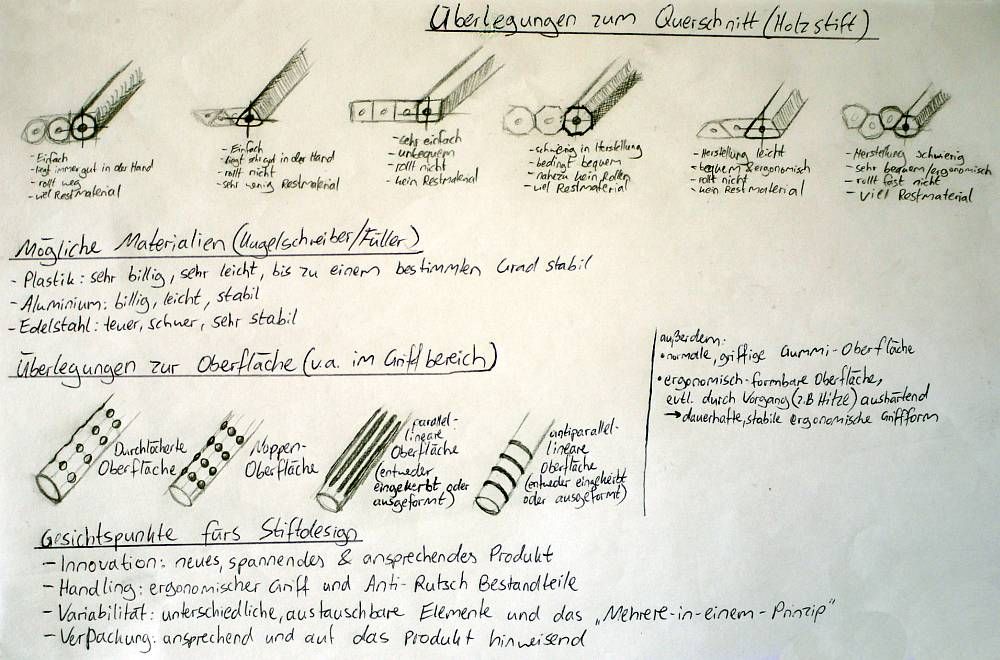 Überlegungen zum Querschnitt (Holzstift)
- Einfach
- liegt immer gut in der Hand
- rollt weg
- viel Restmaterial
- Einfach
- liegt sehr gut in der Hand
- rollt nicht
- sehr wenig Restmaterial
- sehr einfach
- unbequem
- rollt nicht
- kein Restmaterial
- schwierig in Herstellung
- bedingt bequem
- nahezu kein Rollen
- viel Restmaterial
- Herstellung leicht
- bequem & ergonomisch
- rollt nicht
- kein Restmaterial
- Herstellung schwierig
- sehr bequem/ergonomisch
- rollt fast nicht
- viel Restmaterial
Mögliche Materialien (Kugelschreiber/Füller)
- Plastik: sehr billig, sehr leicht, bis zu einem bestimmten Grad stabil
- Aluminium: billig, leicht, stabil
- Edelstahl: teuer, schwer, sehr stabil
Überlegungen zur Oberfläche (v.a. im Griffbereich)
Durchlöcherte
Oberfläche
Noppen-
Oberfläche
parallel-
lineare
Oberfläche
(entweder
eingekerbt oder
ausgeformt)
antiparallel-
lineare
Oberfläche
(entweder eingekerbt
oder ausgeformt)
außerdem:
• normale, griffige Gummi-Oberfläche
• ergonomisch-formbare Oberfläche,
evtl. durch Vorgang (z.B Hitze) aushärtend
→ dauerhafte, stabile ergonomische Griffform
Gesichtspunkte fürs Stiftdesign
- Innovation: neues, spannendes & ansprechendes Produkt
- Handling: ergonomischer Griff und Anti-Rutsch Bestandteile
- Variabilität: unterschiedliche, austauschbare Elemente und das „Mehrere-in-einem-Prinzip"
- Verpackung: ansprechend und auf das Produkt hinweisend